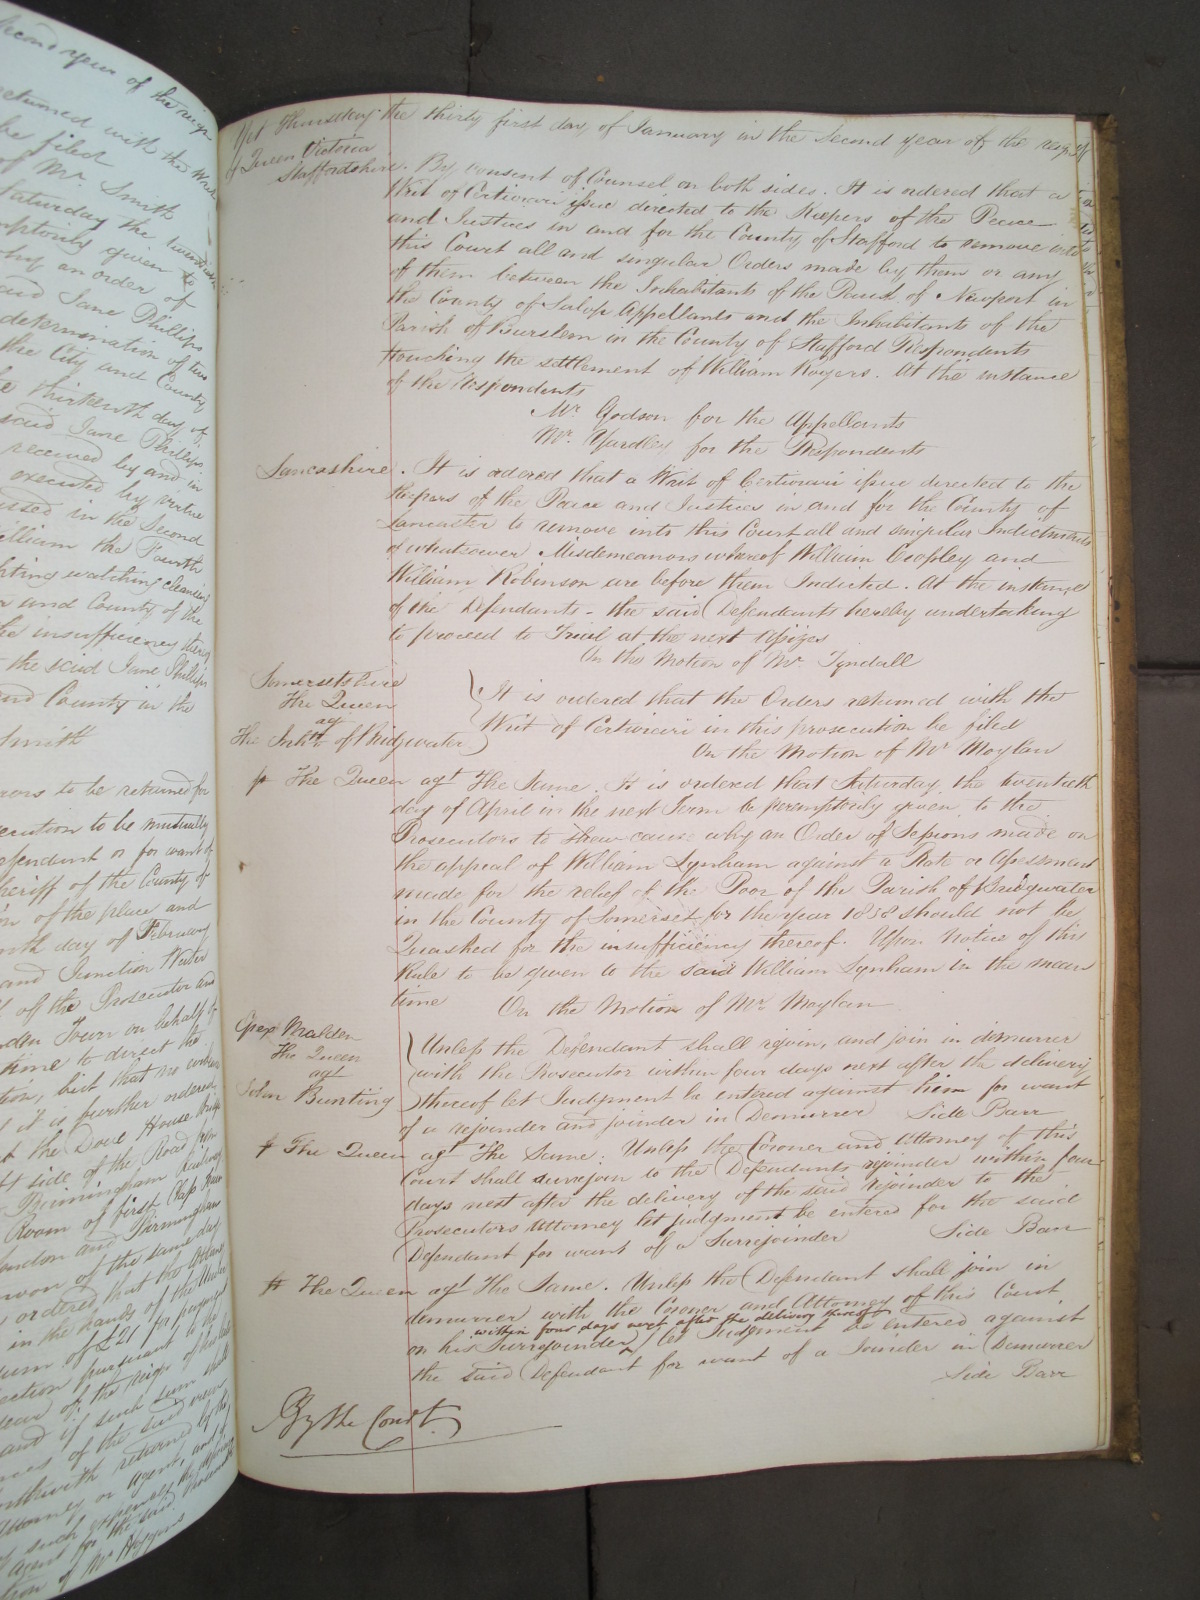 Second year of the reign
returned with the Writ
be filed
of Mr. Smith
Saturday the twentieth
peremptorily given to
why an order of
said Jane Phillips
determination of two
the City and County
the thirteenth day of
said Jane Phillips
received by and in
executed by virtue
passed in the Second
William the Fourth
lighting watching cleansing
and County of the
the insufficiency thereof
the said Jane Phillips
and County in the
Smith
to be returned for
to be mutually
Defendant or for want of
Sheriff of the County of
of the place and
day of February
and Junction Water
of the Prosecutor and
Town on behalf of
time to direct the
but that no
it is further ordered
the Dove House Bridge
side of the Road from
Birmingham Railway
Room of first Class
London and Birmingham
of the same day
ordered that the
in the hands of the
sum of £21 for payment
pursuant to the
year of the reign of
and if such sum shall
of the said
returned by the
Attorney or Agent, and
such expenses
Agent for the said
of Mr Higgins
Yet Thursday the thirty first day of January in the Second year of the reign of
Queen Victoria
Staffordshire. By consent of Counsel on both sides. It is ordered that a
Writ of Certiorari issue directed to the Keepers of the Peace
and Justices in and for the County of Stafford to remove into
this Court all and singular Orders made by them or any
of them between the Inhabitants of the Parish of Newport in
the County of Salop Appellants and the Inhabitants of the
Parish of Burslem in the County of Stafford Respondents
touching the settlement of William Rogers. At the instance
of the Respondents
Mr. Godson for the Appellants
Mr. Yardley for the Respondents
Lancashire. It is ordered that a Writ of Certiorari issue directed to the
Keepers of the Peace and Justices in and for the County of
Lancaster to remove into this Court all and singular Indictments
of whatsoever Misdemeanors whereof William Cropley and
William Robinson are before them Indicted. At the instance
of the Defendants - the said Defendants hereby undertaking
to proceed to Trial at the next Assizes
On the Motion of Mr. Tyndall
Somersetshire
The Queen
agt
The Inhts of Bridgwater
It is ordered that the Orders returned with the
Writ of Certiorari in this prosecution be filed
On the Motion of Mr Moylan
The Queen agt The Same. It is ordered that Saturday the twentieth
day of April in the next Term be peremptorily given to the
Prosecutors to shew cause why an Order of Sessions made on
the appeal of William Lynham against a Rate or Assessment
made for the relief of the Poor of the Parish of Bridgwater
in the County of Somerset for the year 1838 should not be
Quashed for the insufficiency thereof. Upon Notice of this
Rule to be given to the said William Lynham in the mean
time On the Motion of Mr. Moylan
Essex Malden
The Queen
agt
John Bunting
Unless the Defendant shall rejoin, and join in demurrer
with the Prosecutor within four days next after the delivery
thereof let Judgment be entered against him for want
of a rejoinder and joinder in Demurrer Side Barr
The Queen agt The Same: Unless the Coroner and Attorney of this
Court shall surrejoin to the Defendants rejoinder within four
days next after the delivery of the said rejoinder to the
Prosecutors Attorney let judgment be entered for the said
Defendant for want of a Surrejoinder Side Barr
The Queen agt The Same. Unless the Defendant shall join in
demurrer with the Coroner and Attorney of this Court
within four days next after the delivery thereof
on his Surrejoinder let Judgment be entered against
the said Defendant for want of a Joinder in Demurrer
Side Barr
By the Court.